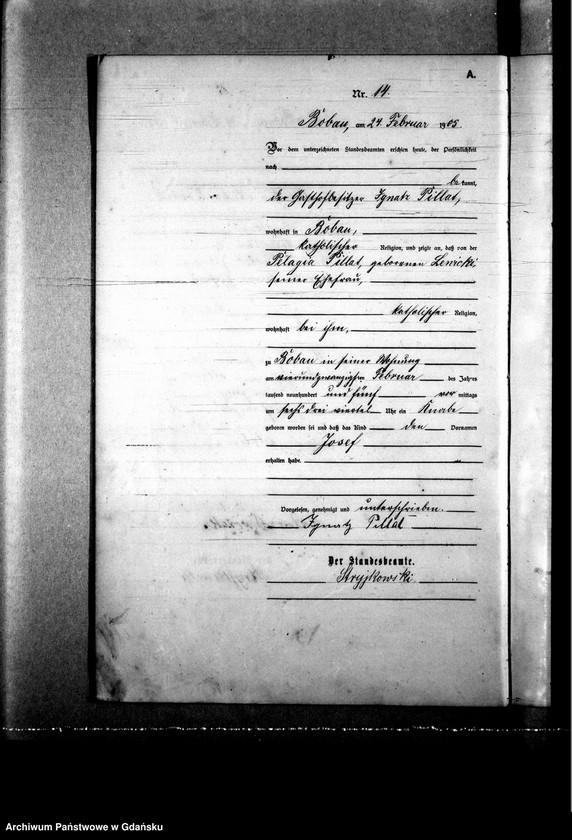 A.
Nr. 14.
Bobau, am 24. Februar 1905
Vor dem unterzeichneten Standesbeamten erschien heute, der Persönlichkeit
nach
be kannt,
der Gasthofbesitzer Ignatz Pillat,
wohnhaft in Bobau,
katholischer Religion, und zeigte an, daß von der
Pelagia Pillat, geborenen Lewicki
seiner Ehefrau,
katholischer Religion,
wohnhaft bei ihm,
zu Bobau in seiner Wohnung
am vierundzwanzigsten Februar des Jahres
tausend neunhundert und fünf vor mittags
um sechs drei viertel Uhr ein Knabe
geboren worden sei und daß das Kind den Vornamen
Josef
erhalten habe.
Vorgelesen, genehmigt und unterschrieben.
Ignatz Pillat
Der Standesbeamte.
Stryjkowski
Archiwum Państwowe w Gdańsku